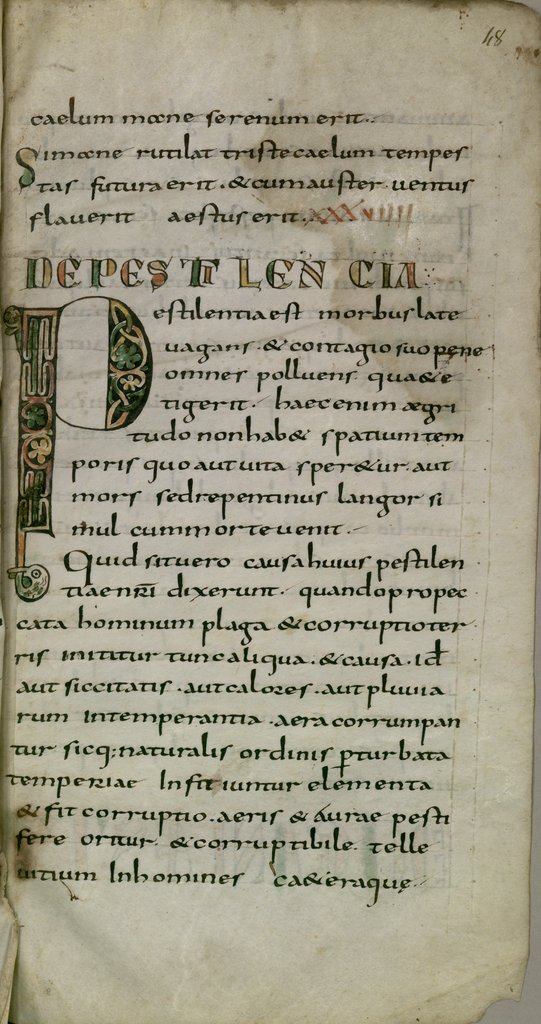 48
caelum mane serenum erit.
Si mane rutilat triste caelum tempes
tas futura erit. & cum auster uentus
flauerit aestus erit. xxxviiii
DE PESTILENCIA
Pestilentia est morbus late
uagans. & contagio suo pene
omnes polluens quae&e
tigerit. haec enim aegri
tudo non hab& spatium tem
poris quo aut uita sper&ur. aut
mors sed repentinus langor si
mul cum morte uenit.
Quid sit uero causa huius pestilen
tiae nr̄i dixerunt. quando pro pec
cata hominum plaga & corruptio ter
ris inititur tunc aliqua. & causa. id
aut siccitatis. aut calores. aut pluuia
rum intemperantia. aera corrumpan
tur sicq; naturalis ordinis p̱turbata
temperiae Inficiuntur elementa
& fit corruptio. aeris & aurae pesti
fere oritur. & corruptibile. telle
uitium In homines ca&eraque